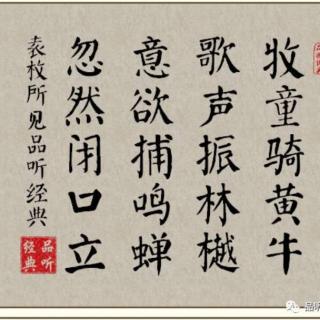 牧童骑黄牛
歌声振林樾
意欲捕鸣蝉
忽然闭口立
袁枚所见品听经典
品听
经典